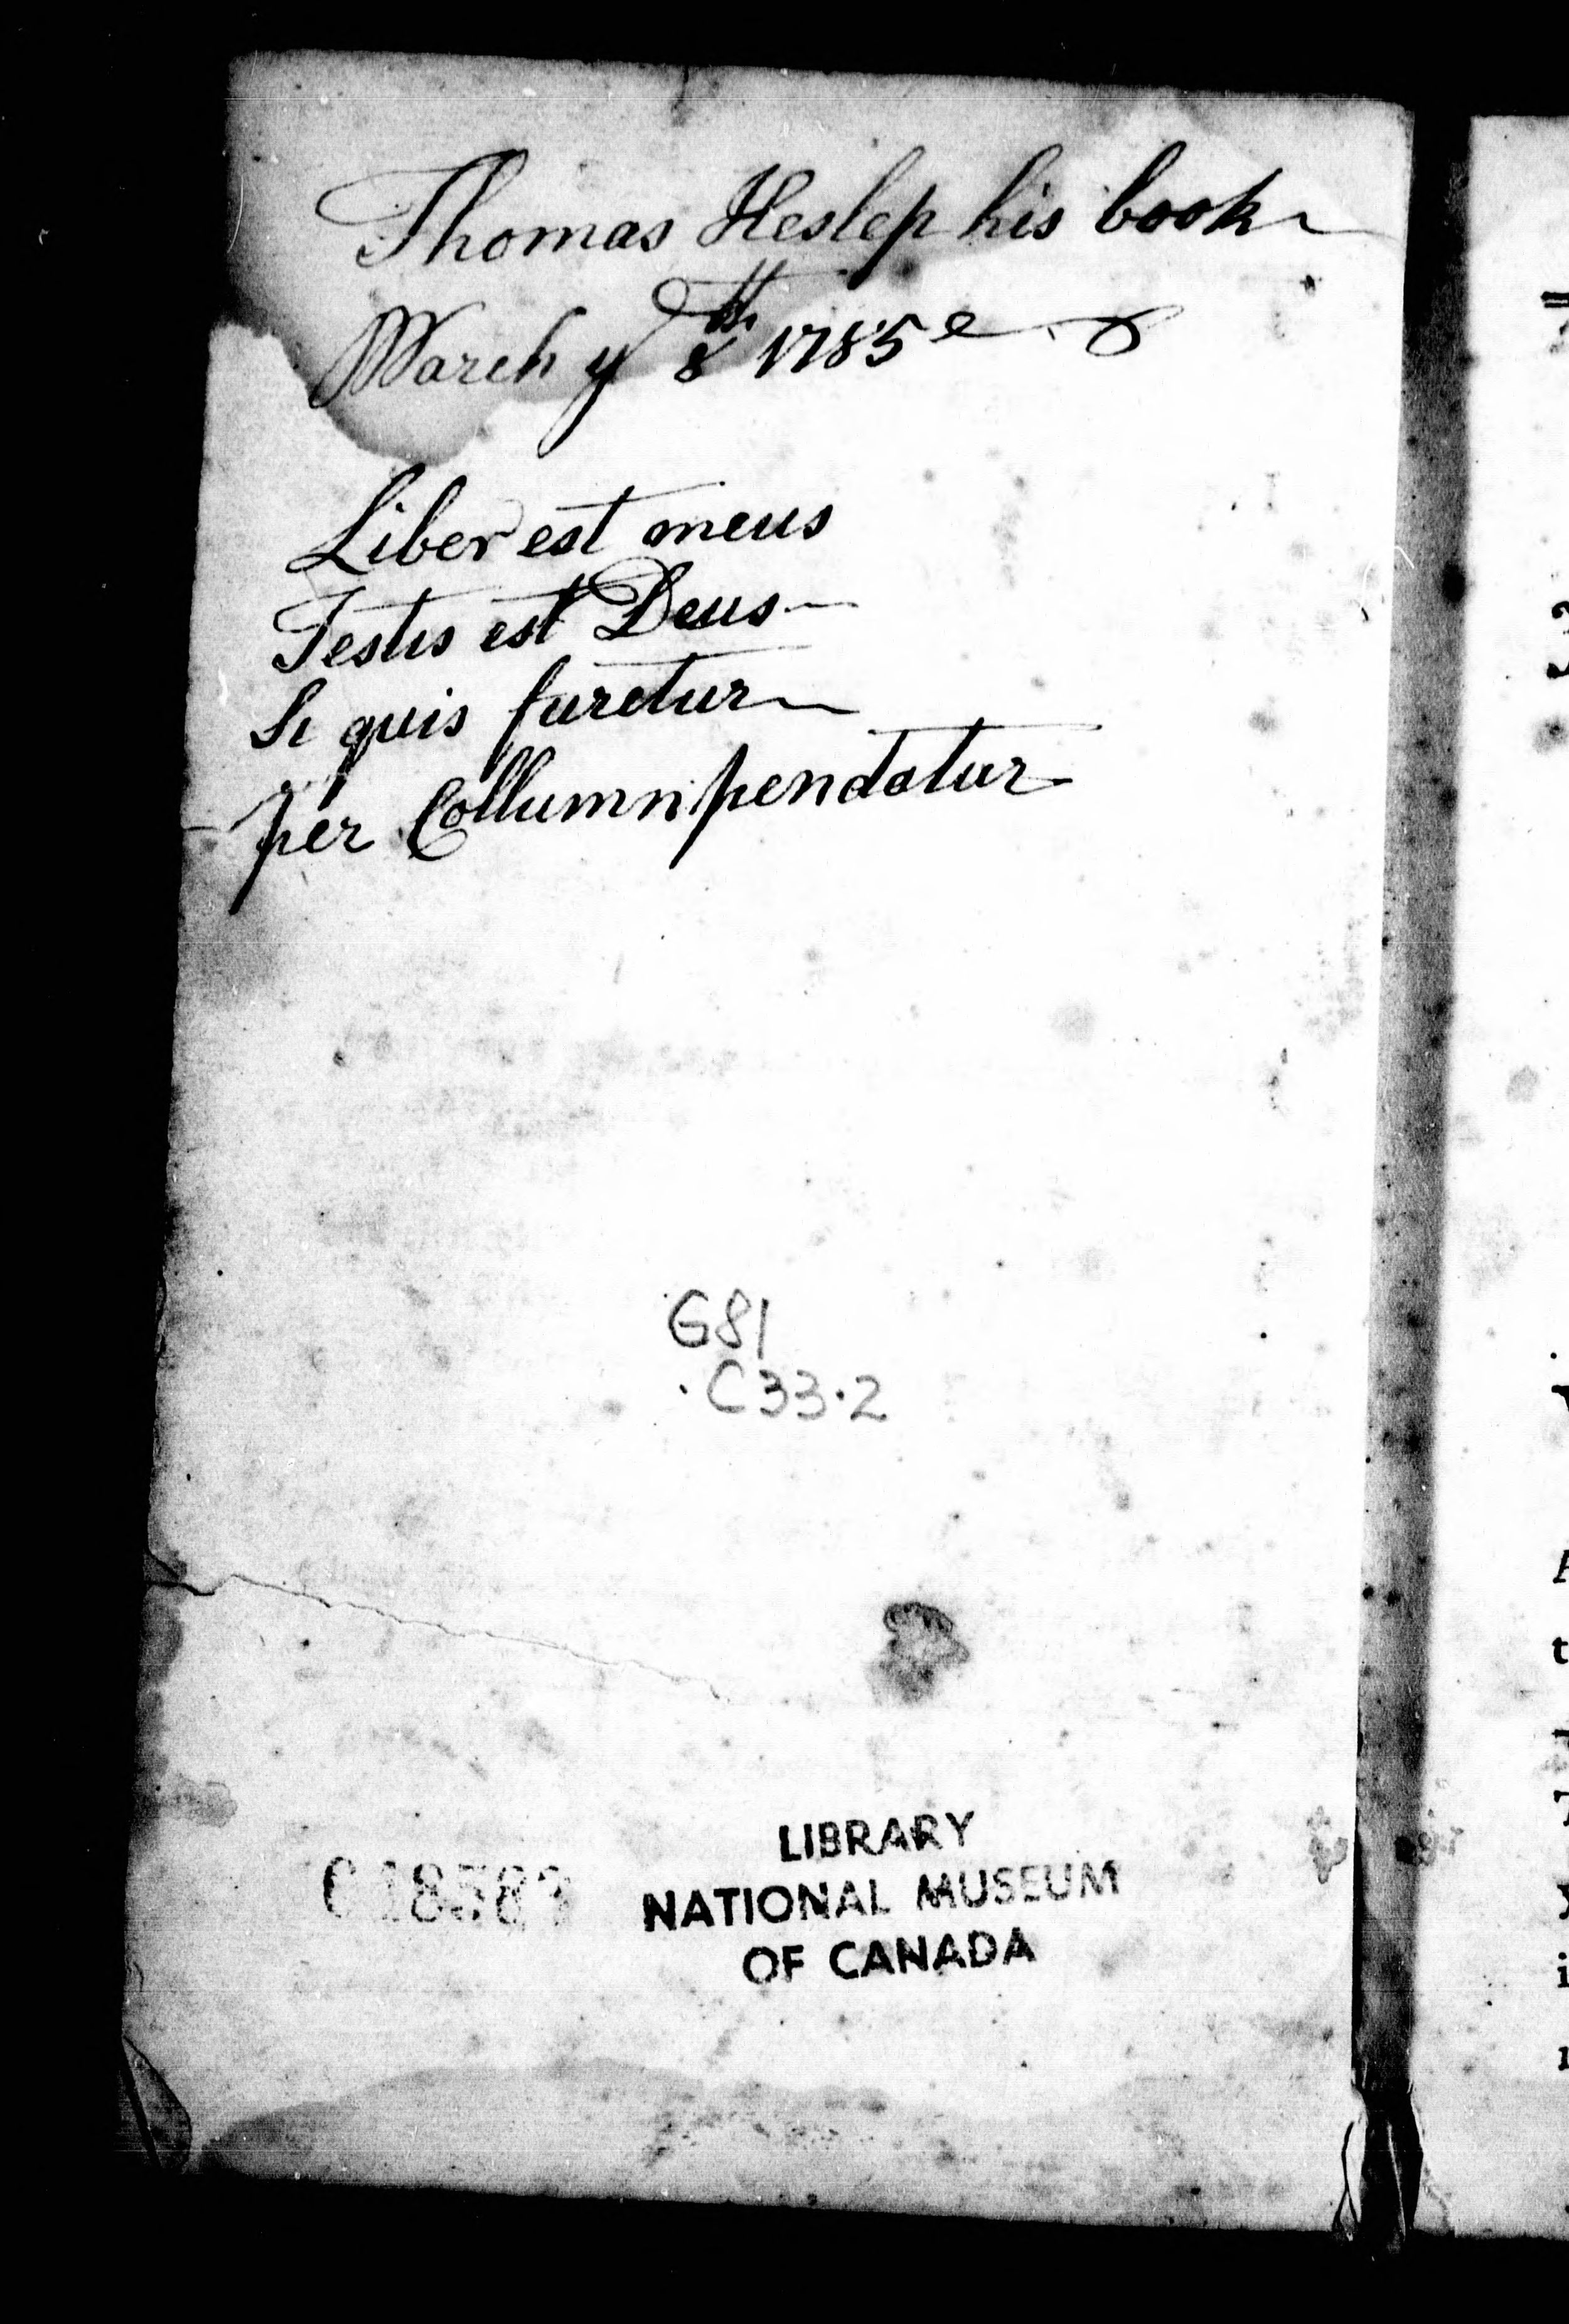 Thomas Heslep his book
March y 8th 1785
Liber est meus
Testis est Deus
Si quis furetur
per Collumn pendatur
G81
.C33.2
LIBRARY
NATIONAL MUSEUM
OF CANADA